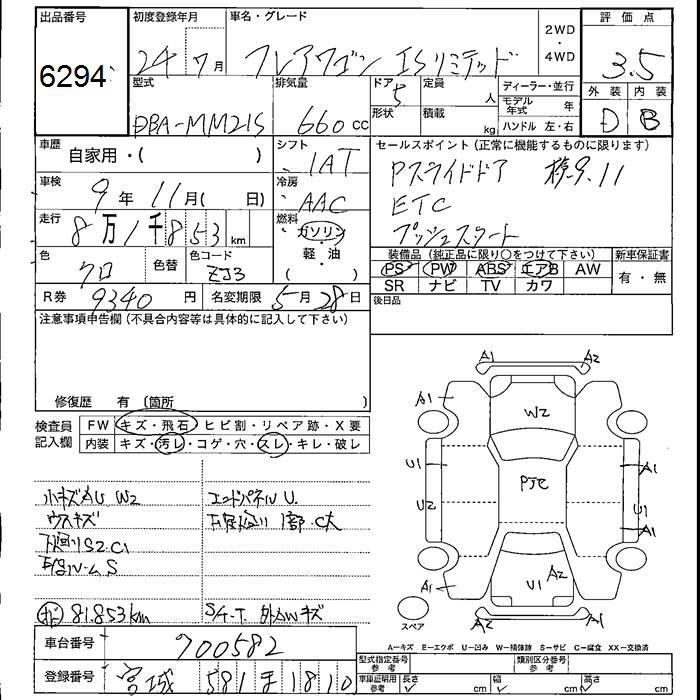 出品番号
6294
初度登録年月
24 7月
車名・グレード
フレアワゴン XSリミテッド
2WD
・
4WD
評価点
3.5
型式
DBA-MM21S
排気量
660 cc
ドア
5
形状
定員
人
積載
kg
ディーラー・並行
モデル年式 年
ハンドル 左・右
外装 内装
D B
車歴
自家用・( )
シフト
IAT
車検
9年 11月( 日)
冷房
AAC
走行
8万1千853 km
燃料
ガソリン
・
軽・油
( )
色
クロ
色替
色コード
ZJ3
R券 9340 円
名変期限 5月28日
セールスポイント (正常に機能するものに限ります)
Pスライドドア 検9.11
ETC
プッシュスタート
装備品 (純正品に限り〇をつけて下さい)
PS PW ABS エアB AW
SR ナビ TV カワ
新車保証書
有・無
後日品
注意事項申告欄 (不具合内容等は具体的に記入して下さい)
修復歴 有 (箇所 )
検査員記入欄
FW キズ・飛石・ヒビ割・リペア跡・X要
内装 キズ・汚レ・コゲ・穴・スレ・キレ・破レ
小キズAU W2
エンドパネルU
ウスキズ
下廻りS2.C1
S
81.853km
外AWキズ
A1 A2
A1
W2
U1
A1
PテC
U2
U1
A1
A1
U1 A2
A1
A2
スペア
A-キズ E-エクボ U-凹み W-補修跡 S-サビ C-腐食 XX-交換済
車台番号
700582
登録番号
宮城 581 ま 1810
型式指定番号 参考
類別区分番号 参考
車庫証明用 参考
長さ cm
幅 cm
高さ cm